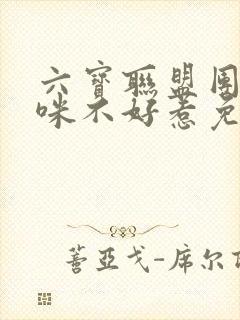 六寶聯盟團
咪不好惹免
蓍亞戈-席尔